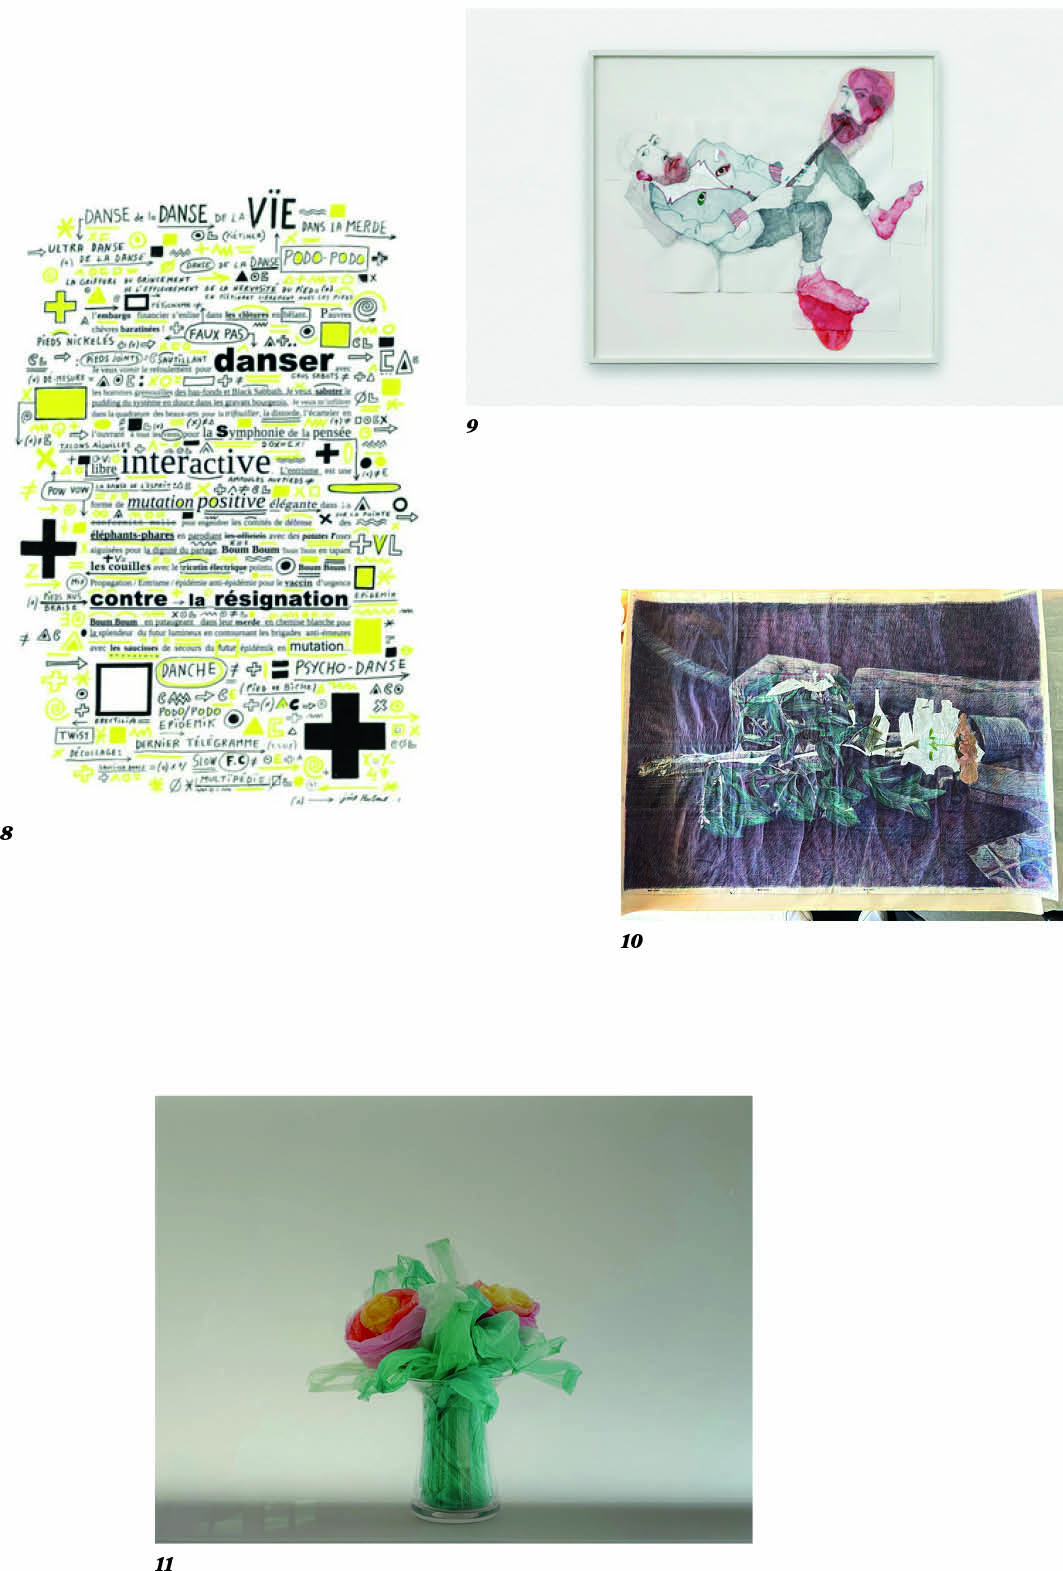 DANSE de la DANSE DE LA VÏE
DANS LA MERDE
(PIÉTINER)
ULTRA DANSE
(+) DE LA DANSE
DANSE DE LA DANSE PODO-PODO
LA GRIFFURE DU GRINCEMENT
DE L'EFFLEUREMENT DE LA NERVOSITÉ DU PIED (+)
l'embargo financier s'enlise dans les clôtures en bêlant. Pauvres
chèvres baratinées !
PIEDS NICKELÉS
FAUX PAS
PIEDS JOINTS
SAUTILLANT
danser
Je veux vomir le refoulement pour avec
DE-MESURE =
les hommes grenouilles des bas-fonds et Black Sabbath. Je veux saboter le
pudding du système en douce dans les gravats bourgeois. Je veux m'infiltrer
dans la quadrature des beaux-arts pour la trifouiller, la distordre, l'écarteler en
l'ouvrant à tous les vents pour la symphonie de la pensée
TALONS AIGUILLES
libre interactive. L'entrisme est une
AMPOULES AUX PIEDS ≠
POW VOW
LA DANSE DE L'ESPRIT
forme de mutation positive élégante dans la
SUR LA POINTE
conformité molle pour engendrer les comités de défense des
éléphants-phares en parodiant les officiels avec des patates roses
aiguisées pour la dignité du partage. Boum Boum Toum Toum en tapant
VL
les couilles avec le tricotin électrique pointu. Boum Boum !
Propagation / Entrisme / épidémie anti-épidémie pour le vaccin d'urgence
PIEDS NUS
BRAISE
contre → la résignation
EPIDEMIK
Boum Boum en pataugeant dans leur merde en chemise blanche pour
la splendeur du futur lumineux en contournant les brigades anti-émeutes
avec les saucisses de secours du futur épidémik en mutation...
DANCHE ≠ + = PSYCHO-DANSE
(PIED DE BICHE)
PODO/PODO
EPÏDEMIK
ERECTILIA
TWIST
DERNIER TÉLÉGRAMME
DÉCOLLAGES
SLOW (F.C) ≠
MULTIPEDIS
8
9
10
11